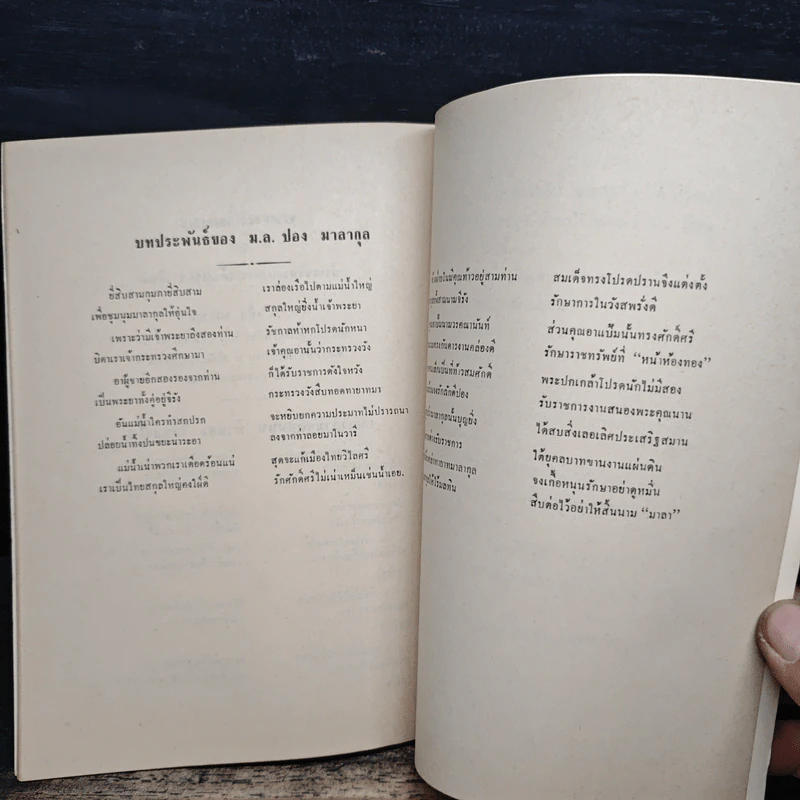 บทประพันธ์ของ ม.ล. ปอง มาลากุล
ยี่สิบสามกุมภายี่สิบสาม เราล่องเรือไปตามแม่น้ำใหญ่
เพื่อชุมนุมมาลากุลให้อุ่นใจ สกุลใหญ่ยิ่งน้ำเจ้าพระยา
เพราะว่ามีเจ้าพระยาถึงสองท่าน รัชกาลห้าหกโปรดนักหนา
บิดาเราเจ้ากระทรวงศึกษามา เจ้าคุณอานั้นว่ากระทรวงวัง
อาผู้ชายอีกสองรองจากท่าน ก็ได้รับราชการดังใจหวัง
เป็นพระยาทั้งคู่อยู่จีรัง กระทรวงวังสืบทอดทายาทมา
อันแม่น้ำใครทำสกปรก จะหยิบยกความประมาทไม่ปรารถนา
ปล่อยน้ำทิ้งปนขยะน่าระอา ลงจากท่าลอยมาในวารี
แม่น้ำเน่าพวกเราเดือดร้อนแน่ สุดจะแก้เมืองไทยวิไลศรี
เราเป็นไทยสกุลใหญ่คงใฝ่ดี รักศักดิ์ศรีไม่เน่าเหม็นเช่นน้ำเอย.
ท่านในมีคุณท้าวอยู่สามท่าน สมเด็จทรงโปรดปรานจึงแต่งตั้ง
สนามจีรัง รักษาการในวังสพรั่งดี
นามวรคณานันท์ ส่วนคุณอาแป๊มนั้นทรงศักดิ์ศรี
งานคล่องดี รักษาราชทรัพย์ที่ “หน้าห้องทอง”
ท้าวสมศักดิ์ พระปกเกล้าโปรดนักไม่มีสอง
รักศักดิ์ปอง รับราชการงานสนองพระคุณนาน
มาลากุลนั้นบุญยิ่ง ได้สบสิ่งเลอเลิศประเสริฐสมาน
รับราชการ ใต้ยุคลบาทขานงานแผ่นดิน
มาลากุล จงเกื้อหนุนรักษาอย่าดูหมิ่น
สืบต่อไว้อย่าให้สิ้นนาม “มาลา”